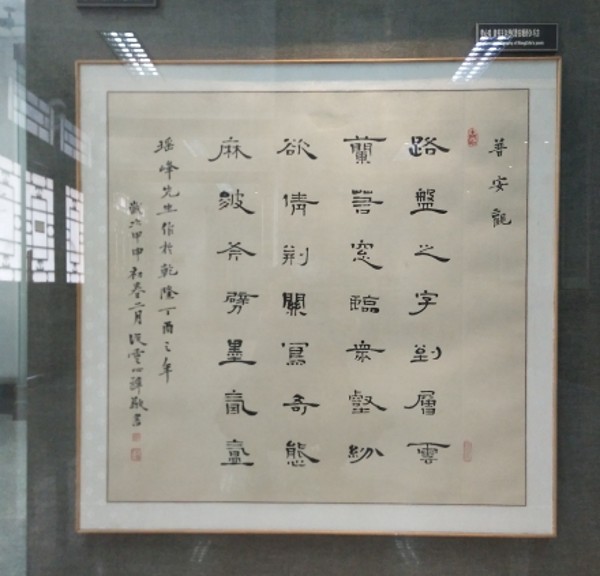 普安龕
路盤之字到層雲
蘭若窓臨衆壑紛
欲倩荆關寫奇態
麻皴斧劈墨氤氳
瑶峰先生作於乾隆丁酉之年
歲次甲申初春二月敬書